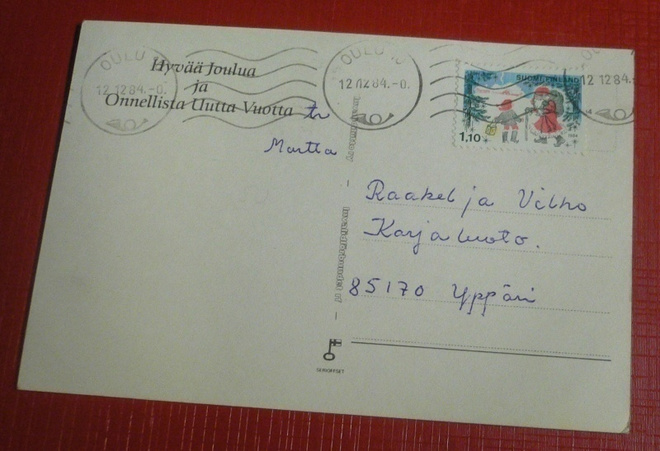 OULU 10
12.12.84.-0.
OULU 10
12.12.84.-0.
12 12 84.-0.
SUOMI FINLAND
1,10
Hyvää Joulua
ja
Onnellista Uutta Vuotta
tr
Martta
Raakel ja Vilho
Karjaluoto.
85170 Yppäri